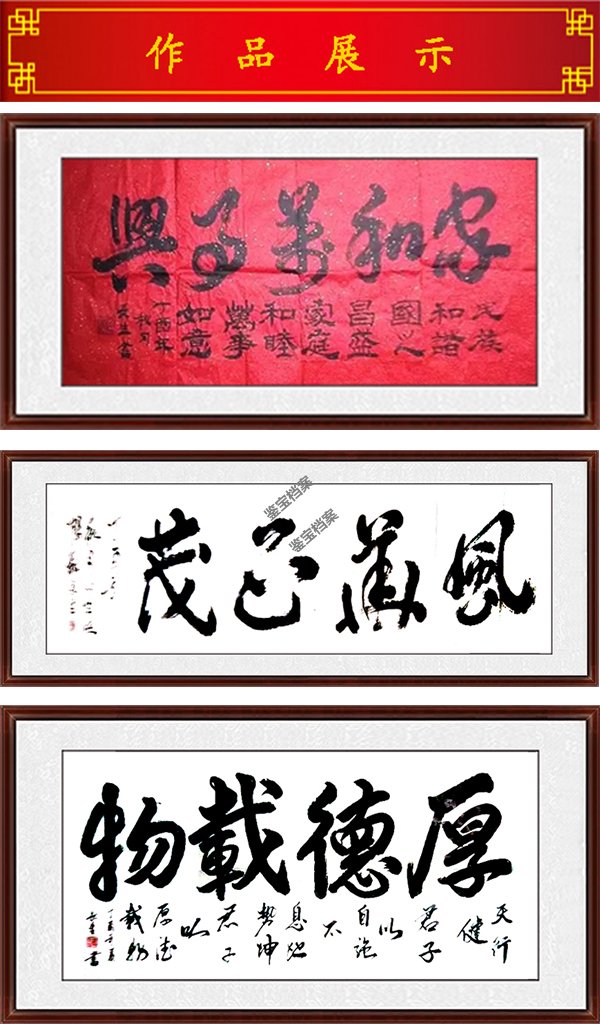 作品展示
家和萬事興
民族
和諧
國之
昌盛
家庭
和睦
萬事
如意
丁酉年
秋月
書
鉴宝档案
鉴宝档案
風華正茂
厚德載物
天行
健
君子
以
自強
不
息地
勢坤
君子
以
厚德
載物
丁酉年夏
書